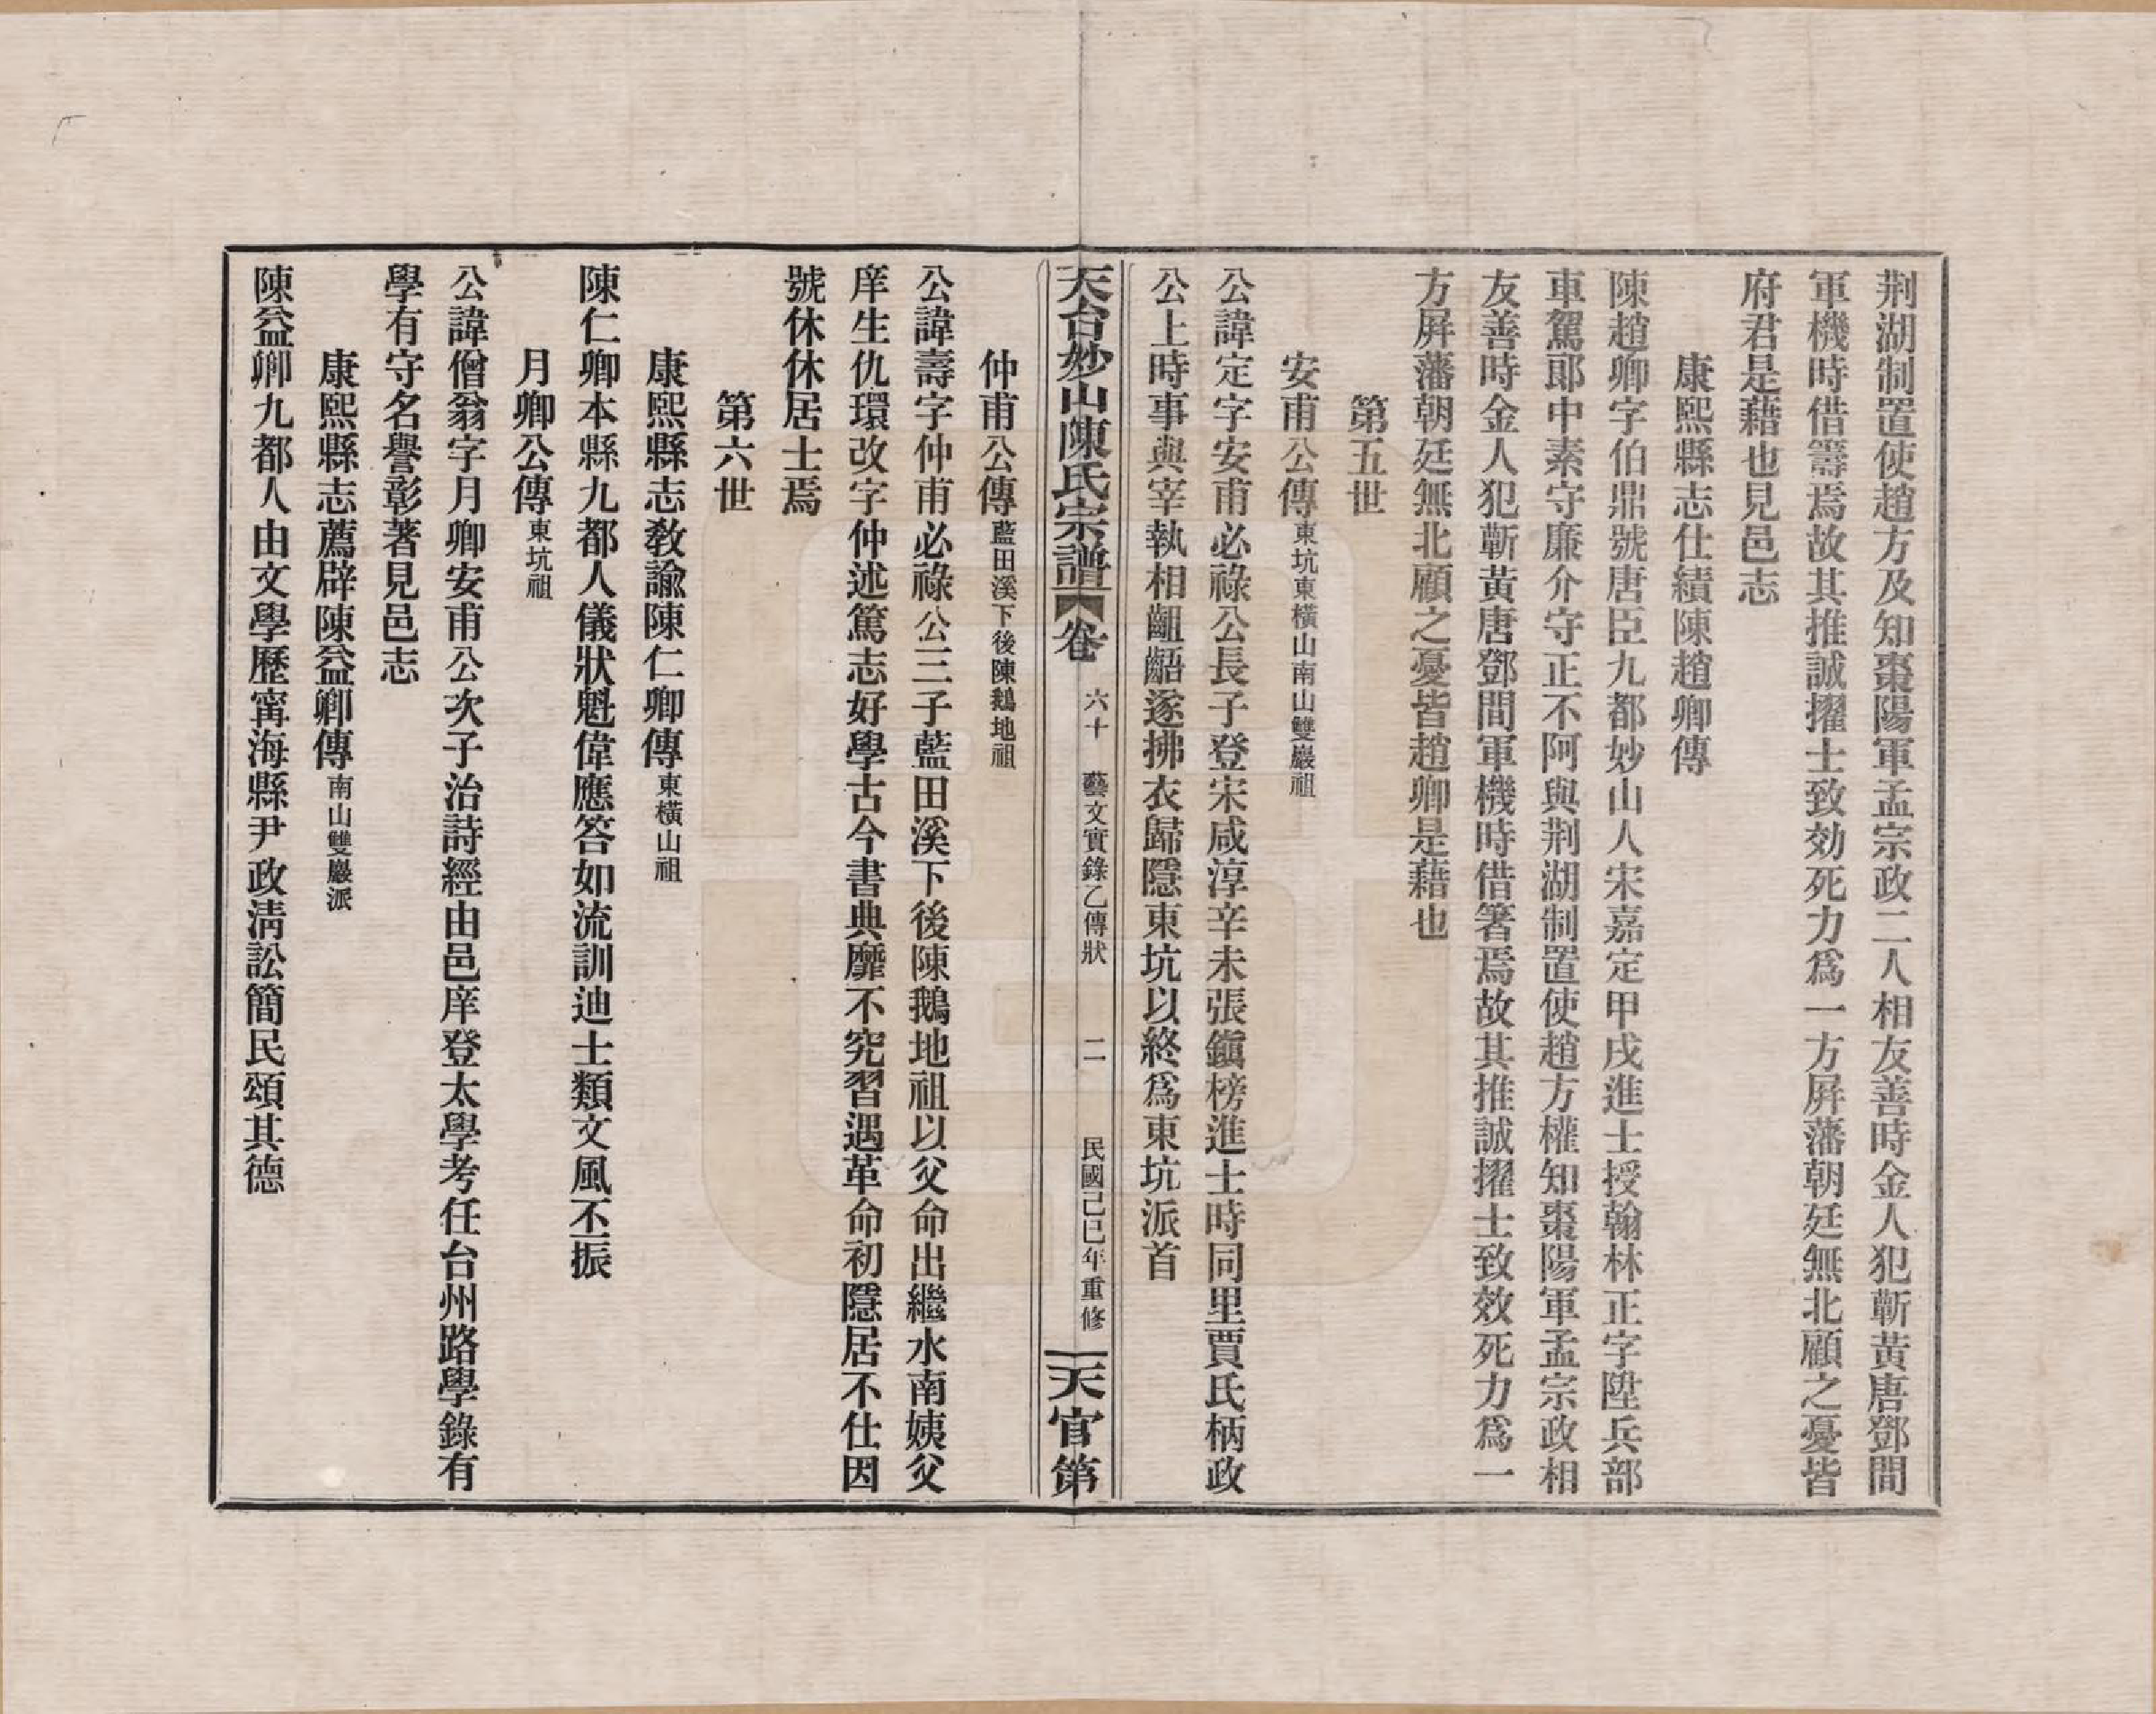 荆湖制置使趙方及知棗陽軍孟宗政二人相友善時金人犯蘄黃唐鄧間
軍機時借籌焉故其推誠擢士致効死力爲一方屛藩朝廷無北顧之憂皆
府君是藉也見邑志
康熙縣志仕績陳趙卿傳
陳趙卿字伯鼎號唐臣九都妙山人宋嘉定甲戌進士授翰林正字陞兵部
車駕郎中素守廉介守正不阿與荆湖制置使趙方權知棗陽軍孟宗政相
友善時金人犯蘄黃唐鄧間軍機時借箸焉故其推誠擢士致效死力爲一
方屛藩朝廷無北顧之憂皆趙卿是藉也
第五世
安甫公傳東坑東橫山南山雙巖祖
公諱定字安甫必祿公長子登宋咸淳辛未張鎭榜進士時同里賈氏柄政
公上時事與宰執相齟齬遂拂衣歸隱東坑以終爲東坑派首
天台妙山陳氏宗譜 卷 六十 藝文實錄乙傳狀 二 民國己巳年重修 天官第
仲甫公傳藍田溪下後陳鵝地祖
公諱壽字仲甫必祿公三子藍田溪下後陳鵝地祖以父命出繼水南姨父
庠生仇環改字仲述篤志好學古今書典靡不究習遇革命初隱居不仕因
號休休居士焉
第六世
康熙縣志敎諭陳仁卿傳東橫山祖
陳仁卿本縣九都人儀狀魁偉應答如流訓迪士類文風丕振
月卿公傳東坑祖
公諱僧翁字月卿安甫公次子治詩經由邑庠登太學考任台州路學錄有
學有守名譽彰著見邑志
康熙縣志薦辟陳益卿傳南山雙巖派
陳益卿九都人由文學歷寗海縣尹政淸訟簡民頌其德